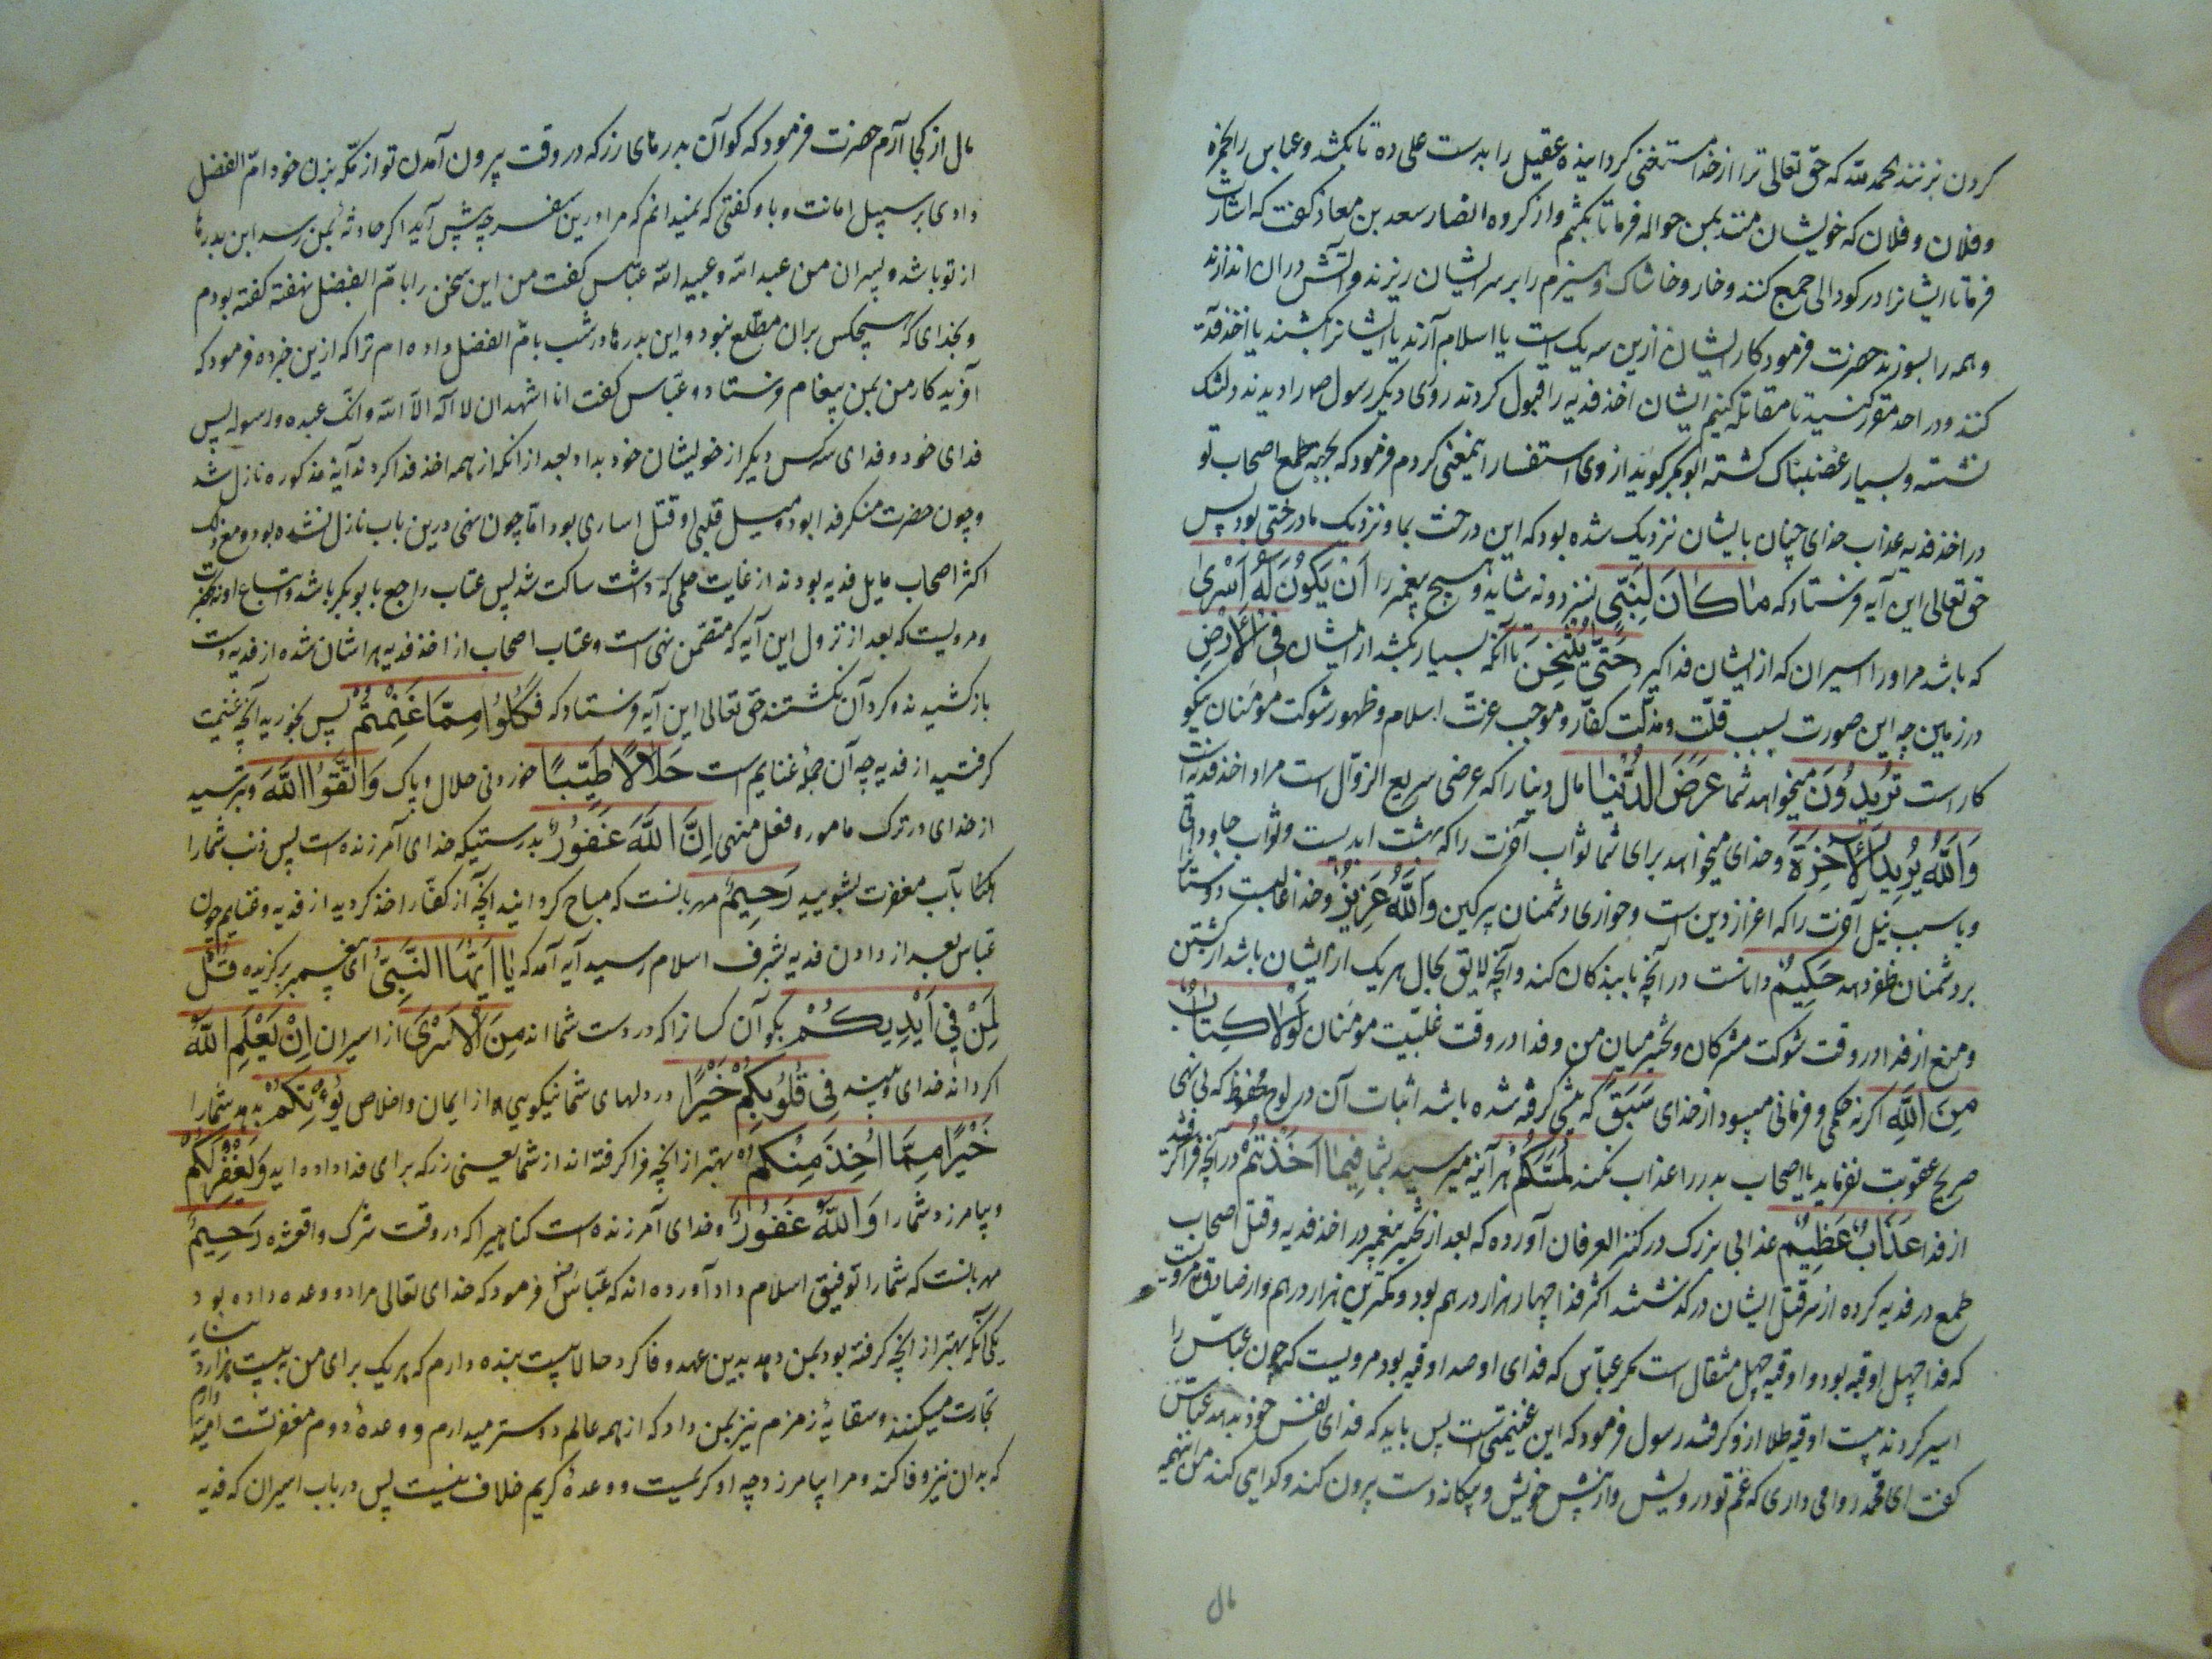 کردن بزنند بحمد الله که حق تعالی ترا از فدا مستغنی کردانیده عقیل را بدست علی ده تا بکشد و عباس را بحمزه
و فلان و فلان که خویشان منند بمن حواله فرما تا بکشم و از کروه انصار سعد بن معاذ کفت که اشارت
فرما تا ایشانرا در کودالی جمع کنند و خار و خاشاک و هیزم را بر سر ایشان ریزند و آتش در ان اندازند
و همه را بسوزند حضرت فرمود کار ایشان ازین سه یک است یا اسلام آرند یا ایشانرا بکشند یا اخذ فدیه
کنند و در احد مقرر کنید تا مقاتله کنیم ایشان اخذ فدیه را قبول کردند روی دیکر رسول ص را دیدند دلتنک
نشسته و بسیار غضبناک کشته ابو بکر کوید از وی استفسار اینمعنی کردم فرمود که بجهة طمع اصحاب تو
در اخذ فدیه عذاب خدای چنان بایشان نزدیک شده بود که این درخت بما و نزدیک ما درختی بود پس
حق تعالی این آیه فرستاد که مٰا کٰانَ لِنَبِیٍّ نسزد و نه شاید هیچ پیغمبر را اَنْ یَکُونَ لَهُ اَسْریٰ
که باشد مر اورا اسیران که از ایشان فدا کیرد حَتّیٰ یُثْخِنَ تا آنکه بسیار بکشد از ایشان فِی الْاَرْضِ
در زمین چه این صورت سبب قلّت و مذلّت کفّار و موجب عزت اسلام و ظهور شوکت مؤمنان نیکو
کار است تُرِیدُونَ میخواهد شما عَرَضَ الدُّنْیٰا مال دنیا را که عرضی سریع الزوال است مراد اخذ فدیه است
وَاللّٰهُ یُرِیدُ الْاٰخِرَةَ و خدای میخواهد برای شما ثواب آخرت را که بهشت ابدیست و ثواب جاودانی
و یا سبب نیل آخرت را که اعزاز دین است و خواری دشمنان پر کین وَاللّٰهُ عَزِیزٌ و خدا غالبست دوستانرا
بر دشمنان ظفر دهد حَکِیمٌ داناست در آنچه با بندکان کند و آنچه لایق بحال هر یک از ایشان باشد از کشتن
و منع از فدا در وقت شوکت مشرکان و تخییر میان من و فدا در وقت غلبیّت مؤمنان لَوْلٰا کِتٰابٌ
مِنَ اللّٰهِ اکر نه حکمی و فرمانی میبود از خدای سَبَقَ که پیشی کرفته شده باشد اثبات آن در لوح محفوظ که بی نهی
صریح عقوبت نفرماید یا اصحاب بدر را عذاب نکند لَمَسَّکُمْ هر آینه میرسید بشما فِیمٰا اَخَذْتُمْ در آنچه فرا کرفتید
از فدا عَذٰابٌ عَظِیمٌ عذابی بزرک در کنز العرفان آورده که بعد از تخییر پیغمبر در اخذ فدیه و قتل اصحاب
طمع در فدیه کرده از سر قتل ایشان درکذشتند اکثر فدا چهار هزار درهم بود و کمترین هزار درهم و از صادق مرویست
که فدا چهل اوقیه بود و اوقیه چهل مثقال است مکر عباس که فدای او صد اوقیه بود مرویست که چون عباس را
اسیر کردند بیست اوقیه طلا از و کرفتند رسول فرمود که این غنیمتی است پس باید که فدای نفس خود بدهد عباس
کفت ای محمد روا می داری که عم تو درویش واز پیش خویش و بیکانه دست بیرون کند و کدایی کند من اینهمه
مال
مال از کجا آرم حضرت فرمود که کو آن بدرهای زر که در وقت بیرون آمدن تو از مکّه بزن خود امّ الفضل
دادی بر سبیل امانت و با و کفتی که نمیدانم که مرا درین سفر چه پیش آید اکر حادثه بمن رسد این بدرها
از تو باشد و پسران من عبد الله و عبید الله عبّاس کفت من این سخن را با امّ الفضل نهفته کفته بودم
و بخدای که هیچکس بران مطّلع نبود و این بدرها در شب بامّ الفضل داده ام ترا که ازین خبر ده فرمود که
آفریدکار من بمن پیغام فرستاد و عبّاس کفت انا اشهد ان لا اله الّا الله و انّک عبده و رسوله پس
فدای خود و فدای سه کس دیکر از خویشان خود بداد و بعد از انکه از همه اخذ فدا کردند آیهٔ مذکوره نازل شد
و چون حضرت منکر فدا بود و میل قلبی او قتل اساری بود امّا چون نهی درین باب نازل نشده بود و مع ذلک
اکثر اصحاب مایل فدیه بودند از غایت حلمی که داشت ساکت شد پس عتاب راجع با بو بکر باشد و اتباع او نه بحضرت
و مرویست که بعد از نزول این آیه که متضمّن نهی است و عتاب اصحاب از اخذ فدیه هراشان شده از فدیه دست
باز کشیدند و کرد آن نکشتند حق تعالی این آیه فرستاد که فَکُلُوا مِمّٰا غَنِمْتُمْ پس بخورید آنچه غنیمت
کرفتید از فدیه چه آن جملهٔ غنایم است حَلٰالًا طَیِّبًا خوردنی حلال و پاک وَاتَّقُوا اللّٰهَ و بترسید
از خدای در ترک مامور و فعل منهی اِنَّ اللّٰهَ غَفُورٌ بدرستیکه خدای آمرزنده است پس ذنب شما را
بآب مغفرت بشویید رَحِیمٌ مهربانست که مباح کردانید آنچه از کفّار اخذ کردید از فدیه و غنایم چون
عبّاس بعد از دادن فدیه بشرف اسلام رسید آیه آمد که یٰا اَیُّهَا النَّبِیُّ ای پیغمبر برکزیده قُلْ
لِمَنْ فِی اَیْدِیکُمْ بکو آن کسانرا که در دست شما اند مِنَ الْاَسْریٰ از اسیران اِنْ یَعْلَمِ اللّٰهُ
اکر داند خدای و بیند فِی قُلُوبِکُمْ خَیْرًا در دلهای شما نیکویی را از ایمان و اخلاص یُؤْتِکُمْ بدهد شما را
خَیْرًا مِمّٰا اُخِذَ مِنْکُمْ بهتر از آنچه فرا کرفته اند از شما یعنی زر که برای فدا داده اید وَیَغْفِرْ لَکُمْ
و بیامرزد شما را وَاللّٰهُ غَفُورٌ و خدای آمرزنده است کناهیرا که در وقت شرک واقع شده رَحِیمٌ
مهربانست که شما را توفیق اسلام داد آورده اند که عبّاس رض فرمود که خدای تعالی مرا دو وعده داده بود
یکی آنکه بهتر از آنچه کرفته بود بمن دهد بدین عهد وفا کرد حالا بیست بنده دارم که هر یک برای من به بیست هزار دینار
تجارت میکنند و سقایهٔ زمزم نیز بمن داد که از همه عالم دوستر میدارم و وعدهٔ دوم مغفرتست امید دارم
که بدان نیز وفا کند و مرا بیامرزد چه او کریمست و وعدهٔ کریم خلاف نیست پس در باب اسیران که فدیه